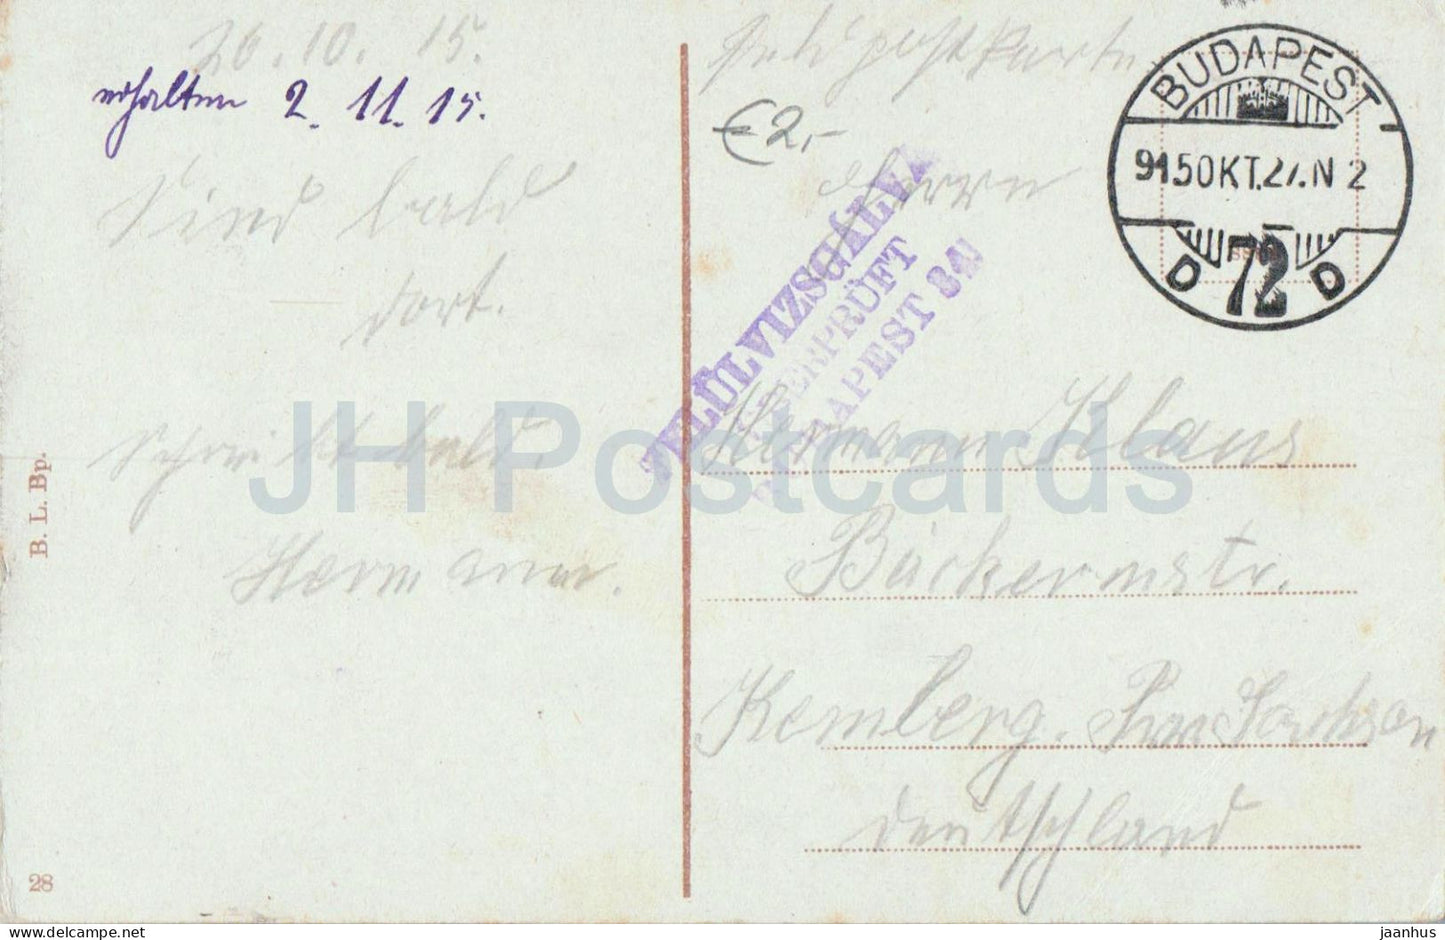 26.10.15.
erhalten 2.11.15.
Sind bald
dort.
Schreibt bald.
Hermann.
B. L. Bp.
28
Feldpostkarte
€2,-
Herrn
Hermann Klaus
Bäckermstr.
Kemberg. Prov Sachsen
Deutschland
FELÜLVIZSGÁLVA
ÜBERPRÜFT
BUDAPEST
BUDAPEST
915 OKT.27.N 2
D 72 D
JH Postcards
delcampe.net
jaanhus